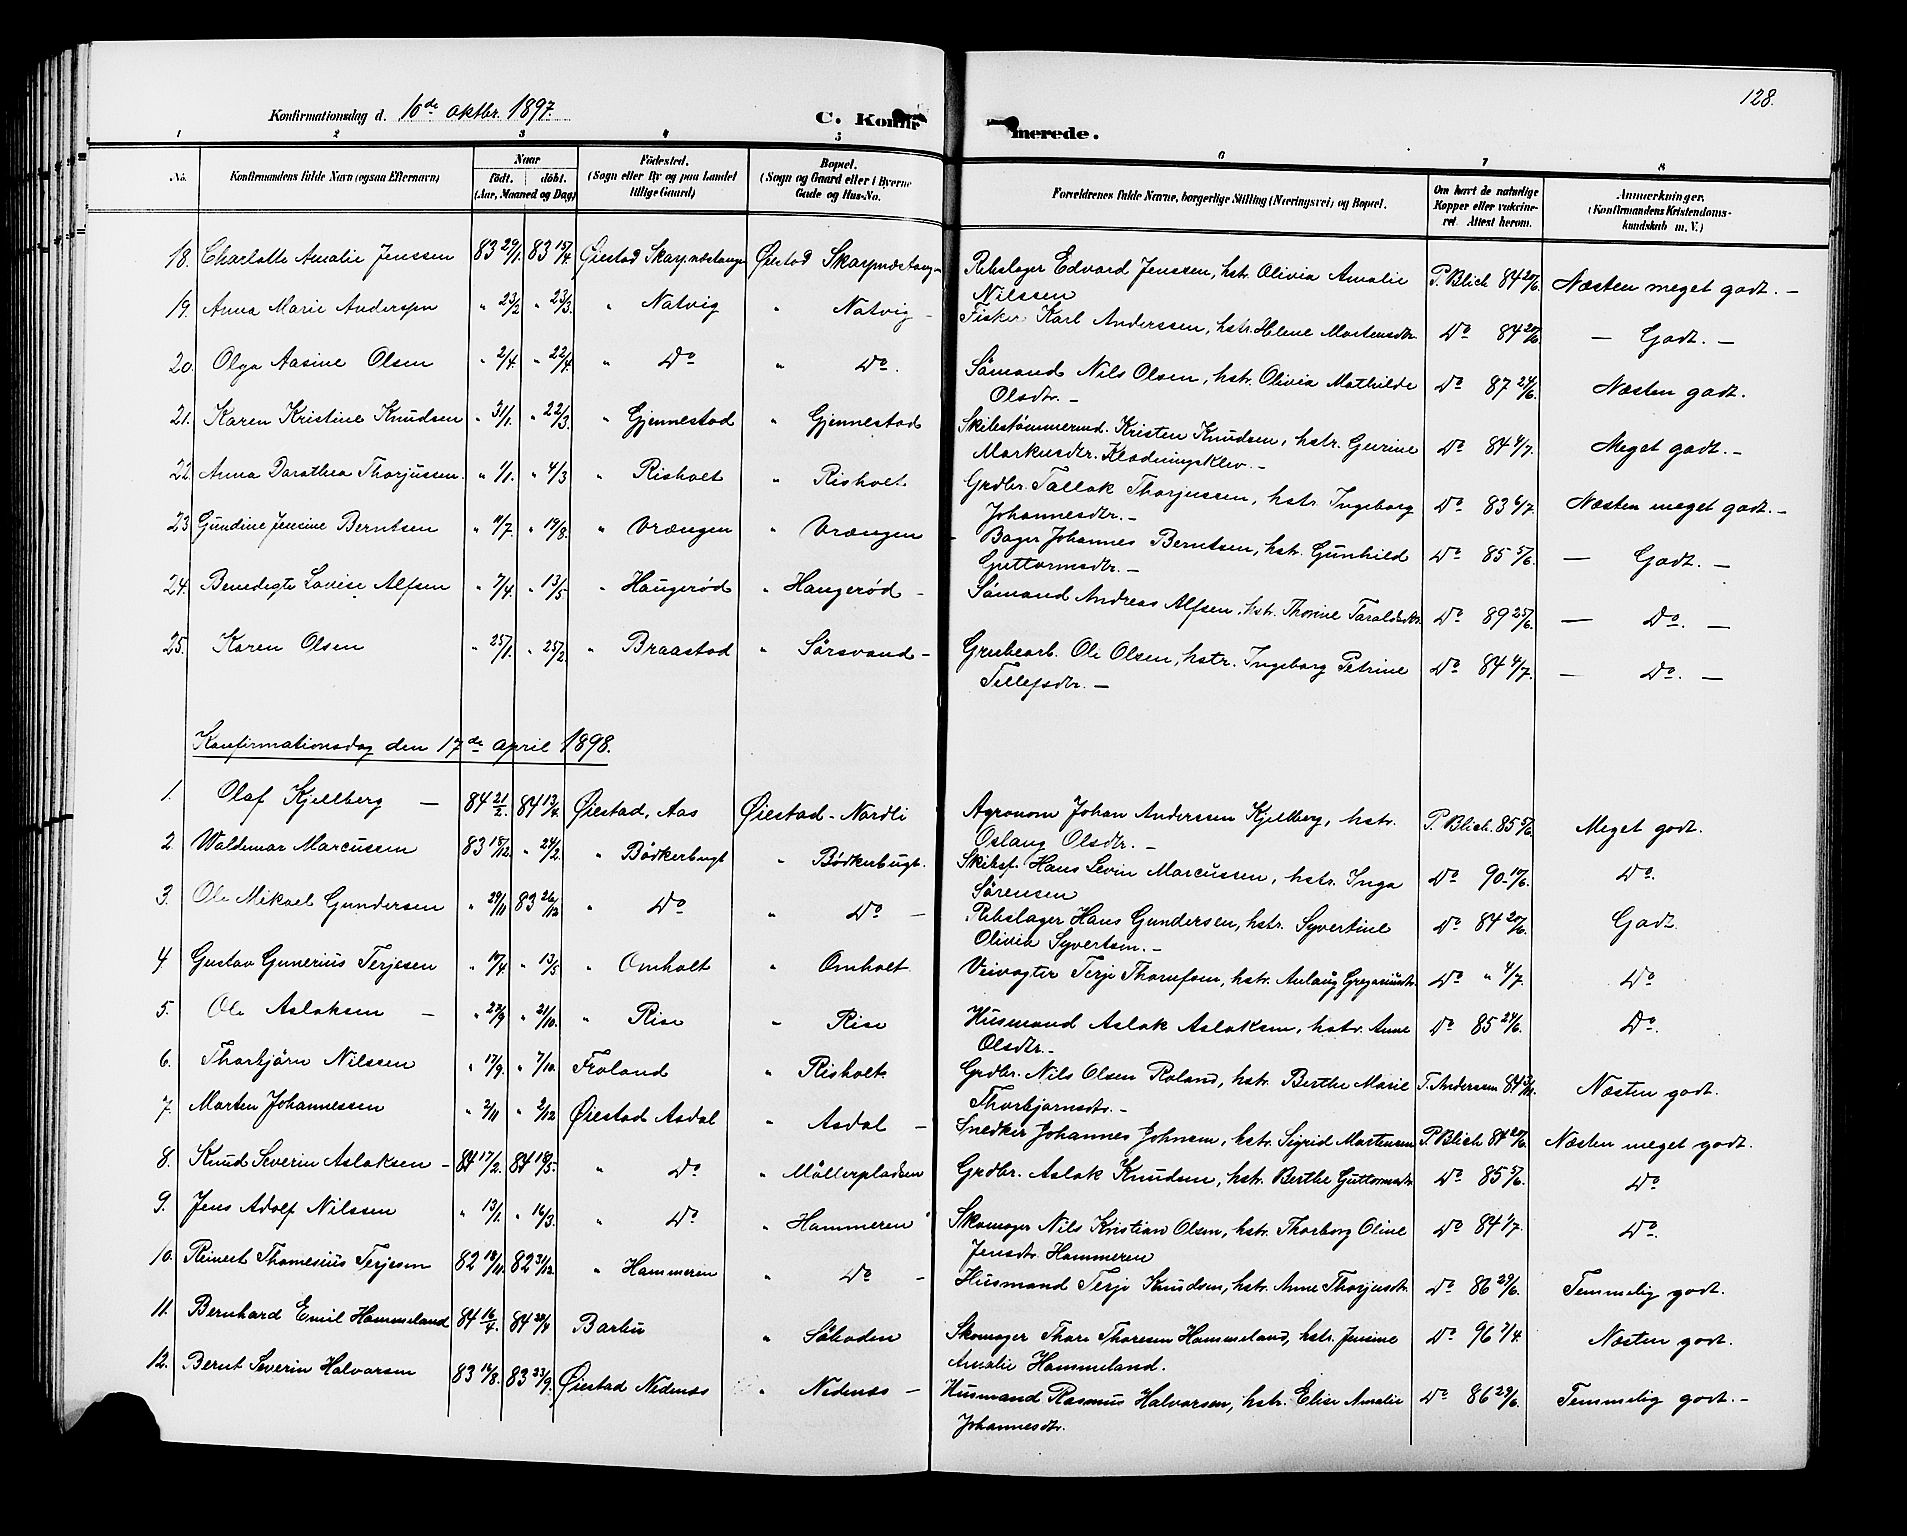 128.
Konfirmationsdag d. 10de oktbr. 1897.
C. Konfirmerede.
1 2 3 4 5 6 7 8
No. Konfirmandens fulde Navn (ogsaa Efternavn) Naar födt. döbt. (Aar, Maaned og Dag) Födested. (Sogn eller By og paa Landet tillige Gaard) Bopæl. (Sogn og Gaard eller i Byerne Gade og Hus-No. Forældrenes fulde Navne, borgerlige Stilling (Næringsvei) og Bopæl. Om havt de naturlige Kopper eller vaksineret. Attest herom. Anmærkninger. (Konfirmandens Kristendomskundskab m. V.)
18. Charlotte Amalie Jenssen 83 29/1. 83 15/4. Øiestad Skarpnæstange Øiestad Skarpnæstang - Rebslager Edvard Jenssen, hstr. Olivia Amalie Nilssen P. Blich 84 20/6. Næsten meget godt. -
19. Anna Marie Anderssen " 23/2 " 23/3. " Natvig " Natvig - Fisker Karl Anderssen, hstr. Helene Mortensdtr. Do 84 20/6 - Godt. -
20. Olga Aasine Olsen " 2/4. " 22/4. " Do " Do. Sömand Nils Olsen, hstr. Olivia Mathilde Olsdtr. - Do 87 24/6. Næsten godt.
21. Karen Kristine Knudsen " 31/1. " 22/3. " Gjennestad " Gjennestad Skibstömmermd. Kristen Knudsen, hstr. Gurine Markusdtr. Klodeningsklev. - Do 84 4/7. Meget godt. -
22. Anna Dorothea Thorjussen. " 1/1. " 4/3 " Risholt " Risholt Grdbr. Tallak Thorjussen, hstr. Ingeborg Johannesdtr. - Do 83 6/7. Næsten meget godt. -
23 Gundine Jensine Berntsen " 11/7. " 19/8. " Vrængen " Vrængen - Bager Johannes Berntsen, hstr. Gunhild Guttormsdtr. - Do 85 5/6. - Godt. -
24. Benedigte Lovise Alfsen " 7/4. " 13/5 " Haugerød " Haugerød - Sömand Andreas Alfsen, hstr. Thorine Taraldsdtr. Do 89 25/6. - Do. -
25. Karen Olsen " 25/1. " 25/2. " Braastad " Sörsvand - Grubearb. Ole Olsen, hstr. Ingeborg Petrine Tellefsdtr. - Do 84 4/7. - Do. -
Konfirmationsdag den 17de april 1898.
1. Olaf Kjellberg - 84 21/2. 84 13/4. Øiestad, Aas Øiestad - Nordli Agronom Johan Anderssen Kjellberg, hstr. Oslaug Olsdtr. - P. Blich. 85 5/6. Meget godt.
2. Waldemar Marcussen 83 18/12. " 24/2. " Bödkerbugt " Bödkerbugt. Skibsf. Hans Levin Marcussen, hstr. Inga Sörensen Do 90 17/6. Do.
3. Ole Mikael Gundersen " 29/11 83 26/12 " Do " Do - Rebslager Hans Gundersen, hstr. Syvertine Olivia Syvertsen. - Do 84 20/6. Godt.
4 Gustav Gunerius Terjesen " 17/4 " 13/5 " Omholt " Omholt. Veivogter Terje Thorefsen, hstr. Aslaug Gregoriusdtr. Do " 4/7. Do
5. Ole Aslaksen - " 27/9 " 21/10. " Rise " Rise Husmand Aslak Aslaksen, hstr. Anne Olsdtr. - Do 85 24/6. Do.
6. Thorbjörn Nilssen " 17/9. " 7/10. Froland " Risholt Grdbr. Nils Olsen Roland, hstr. Berthe Marie Thorbjørnsdtr. - T. Anderssen 84 Næsten godt.
7. Morten Johannessen " 2/11 " 2/12 Øiestad Asdal " Asdal - Snedker Johannes Johnsen, hstr. Sigrid Mortensen P. Blich 84 20/6. Næsten meget godt.
8. Knud Severin Aslaksen - 84 17/2. 84 18/5. " Do " Möllerpladsen Grdbr. Aslak Knudsen, hstr. Berthe Guttormsdtr. Do 85 5/6. Do
9. Jens Adolf Nilssen " 13/1. " 16/3. " Do " Hammeren Skomager Nils Kristian Olsen, hstr. Thorborg Oline Jensdtr. Hammeren Do 84 1/7. Do.
10. Reinert Thomesius Terjesen 82 19/11. 82 31/12. " Hammeren " Do - Husmand Terje Knudsen, hstr. Anne Thorjusdtr. Do 86 29/6. Temmelig godt.
11. Bernhard Emil Hammeland 84 16/4. 84 20/4 Barbu " Söboden Skomager Thore Thoresen Hammeland, hstr. Jensine Amalie Hammeland. Do 96 7/4. Næsten godt.
12. Bernt Severin Halvorsen 83 14/8. 83 23/9. Øiestad Nedenæs " Nedenæs - Husmand Rasmus Halvorsen, hstr. Elise Amalie Johannesdtr. Do 86 29/6. Temmelig godt. -